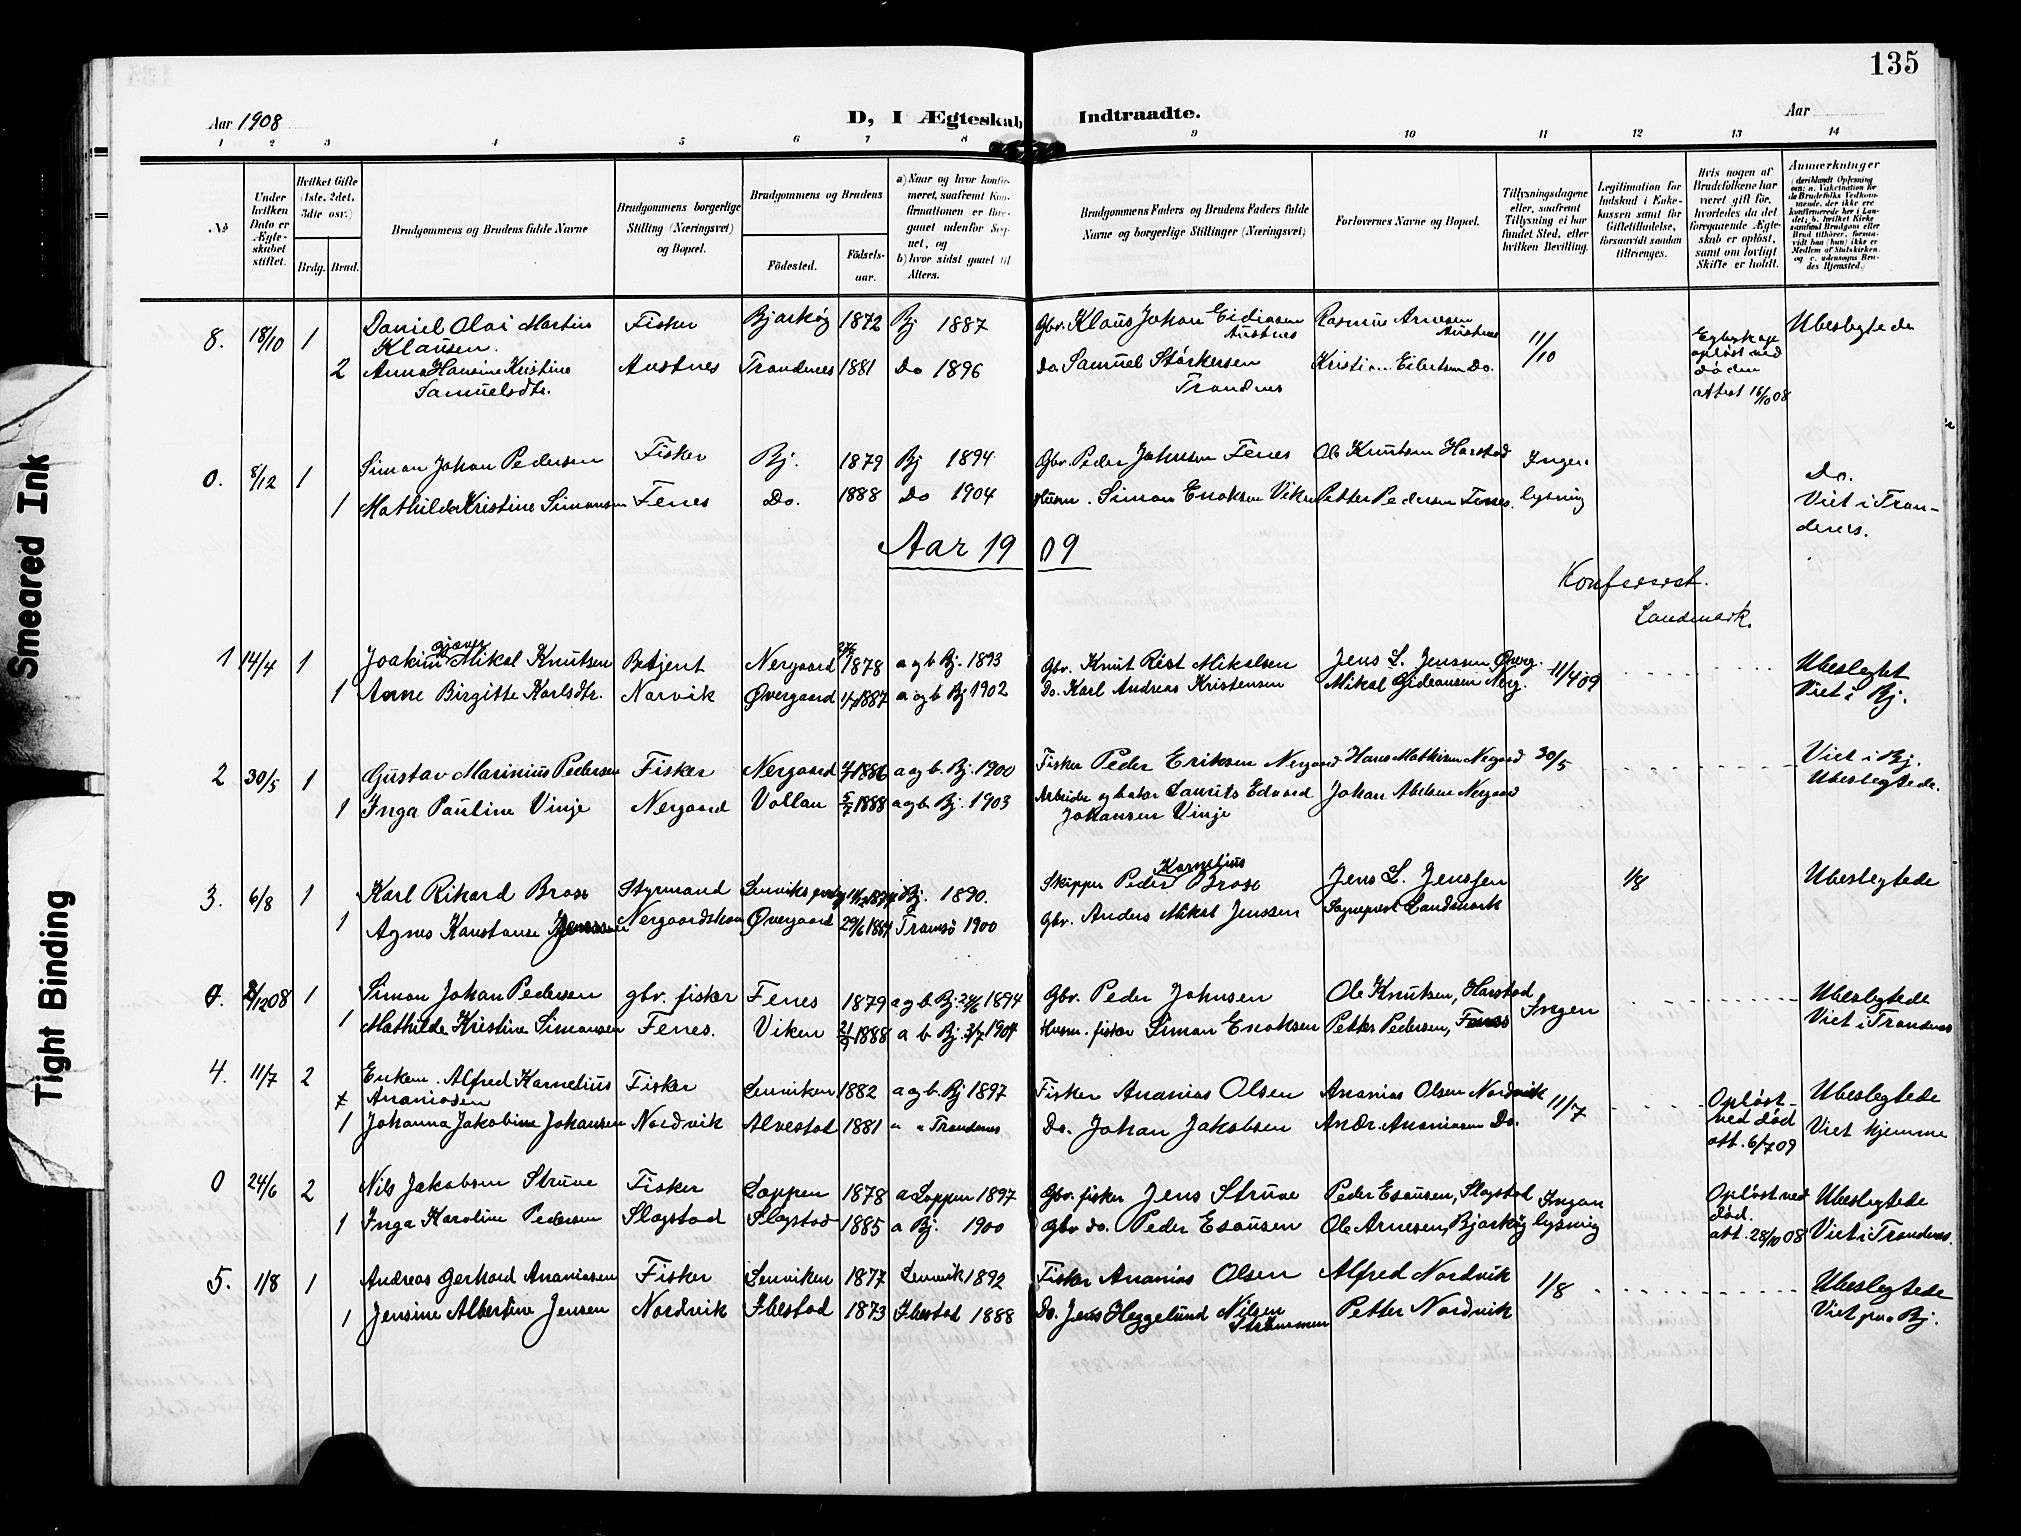 135
Aar 1908
D, I Ægteskab Indtraadte.
Aar
1 2 3 4 5 6 7 8 9 10 11 12 13 14
№
Under hvilken Dato er Ægteskabet stiftet.
Hvilket Gifte (1ste, 2det, 3die osv.)
Brdg. Brud.
Brudgommens og Brudens fulde Navne
Brudgommens borgerlige Stilling (Næringsvei) og Bopæl.
Brudgommens og Brudens
Fødested.
Fødselsaar.
a) Naar og hvor konfirmeret, saafremt Konfirmationen er foregaaet udenfor Sognet, og
b) hvor sidst gaaet til Alters.
Brudgommens Faders og Brudens Faders fulde Navne og borgerlige Stillinger (Næringsvei)
Forlovernes Navne og Bopæl.
Tillysningsdagene eller, saafremt Tillysning ei har fundet Sted, efter hvilken Bevilling.
Legitimation for Indskud i Enkekassen samt for Giftetilladelse, forsaavidt saadan tiltrænges.
Hvis nogen af Brudefolkene har været gift før, hvorledes da det foregaaende Ægteskab er opløst, samt om lovligt Skifte er holdt.
Anmærkninger
8. 18/10 1 Daniel Olai Martin Klausen. Fisker Bjarkøy 1872 Bj 1887 Gbr. Klaus Johan Eidissen Austnes Rasmus Arnesen Austnes 11/10 Egteskap opløst ved døden attest 16/10 08 Ubeslegtede
2 Anna Hansine Kristine Samuelsdtr. Austnes Trondenes 1881 Do 1896 Do Samuel Størkersen Trondenes Eilertsen Do.
0. 8/12 1 Simon Johan Pedersen Fisker Bj. 1879 Bj 1894 Gbr. Peder Johnsen Fenes Ole Knutsen Harstad Ingen lysning Do. Viet i Trondenes.
1 Mathilde Kristine Simonsen Fenes Do. 1888 Do 1904 Husm. Simon Enoksen Viken Petter Pedersen Fenes.
Aar 1909
Konfererert.
Landmark.
1 14/4 1 Joakim Gjæver Mikal Knutsen Betjent Nergaard 1878 a og b Bj. 1893 Gbr. Knut Rist Mikalsen Jens L. Jenssen Øverg. 11/4 09 Ubeslegtet Viet i Bj.
1 Anne Birgitte Karlsdtr. Narvik Øvergaard 1887 a og b Bj 1902 Do. Karl Andreas Kristensen Mikal Gideonsen Nerg.
2 30/5 1 Gustav Marinius Pedersen Fisker Nergaard 1886 a og b. Bj. 1900 Fisker Peder Eriksen Nergaard Hans Mathisen Nergaard 30/5 Viet i Bj. Ubeslegtede.
1 Inga Pauline Vinje Nergaard Vollan 5/7 1888 a og b. Bj. 1903 Arbeider Laurits Edvard Johansen Vinje Johan Abelsen Nergaard
3. 6/8 1 Karl Rikard Brox Styrmand Lenviks Bj. 1890. Skipper Peder Kornelius Brox Jens L. Jenssen 1/8 Ubeslegtede
1 Agnes Konstanse Jenssen Nergaardshavn Øvergaard 29/6 Tromsø 1900 Gbr. Anders Mikal Jenssen Sogneprest Landmark
0. 8/12 08 1 Simon Johan Pedersen gbr. fisker Fenes 1879 a og b Bj. 1894 Gbr. Peder Johnsen Ole Knutsen, Harstad Ingen Ubeslegtede Viet i Trondenes
1 Mathilde Kristine Simonsen Fenes. Viken 1888 a b Bj. 3/7 1904 Husm. fisker Simon Enoksen Petter Pedersen, Fenes
4. 11/7 2 Enkem. Alfred Kornelius Ananiassen Fisker Lenviken 1882 a og b Bj 1897 Fisker Ananias Olsen Ananias Olsen Nordvik 11/7 Opløst ved død att. 6/7 09 Ubeslegtede Viet hjemme
1 Johanna Jakobine Johansen Nordvik Alvestad 1881 " " Trondenes Do. Johan Jakobsen Andr. Ananiassen Do.
0 24/6 2 Nils Jakobsen Struve Fisker Loppen 1878 a Loppen 1897 Gbr. fisker Jens Struve Peder Esausen, Slagstad Ingen lysning Opløst ved død. att. 28/10 08 Ubeslegtede Viet i Trondenes.
1 Inga Karoline Pedersen Slagstad Slagstad 1885 a Bj. 1900 Gbr. do. Peder Esausen Ole Arnesen, Bjarkøy
5. 1/8 1 Andreas Gerhard Ananiassen Fisker Lenviken 1877 Lenvik 1892 Fisker Ananias Olsen Alfred Nordvik 1/8 Ubeslegtede Viet paa Bj.
1 Jensine Albertine Jensen Nordvik Ibestad 1873 Ibestad 1888 Do. Jens Heggelund Nilsen Strømmen Petter Nordvik
Smeared Ink
Tight Binding